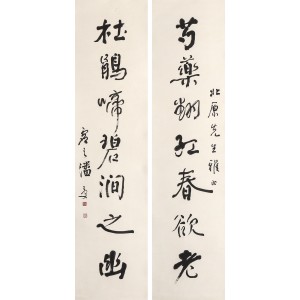 芍藥翻紅春欲老
北原先生雅正
杜鵑啼碧澗之幽
潘受